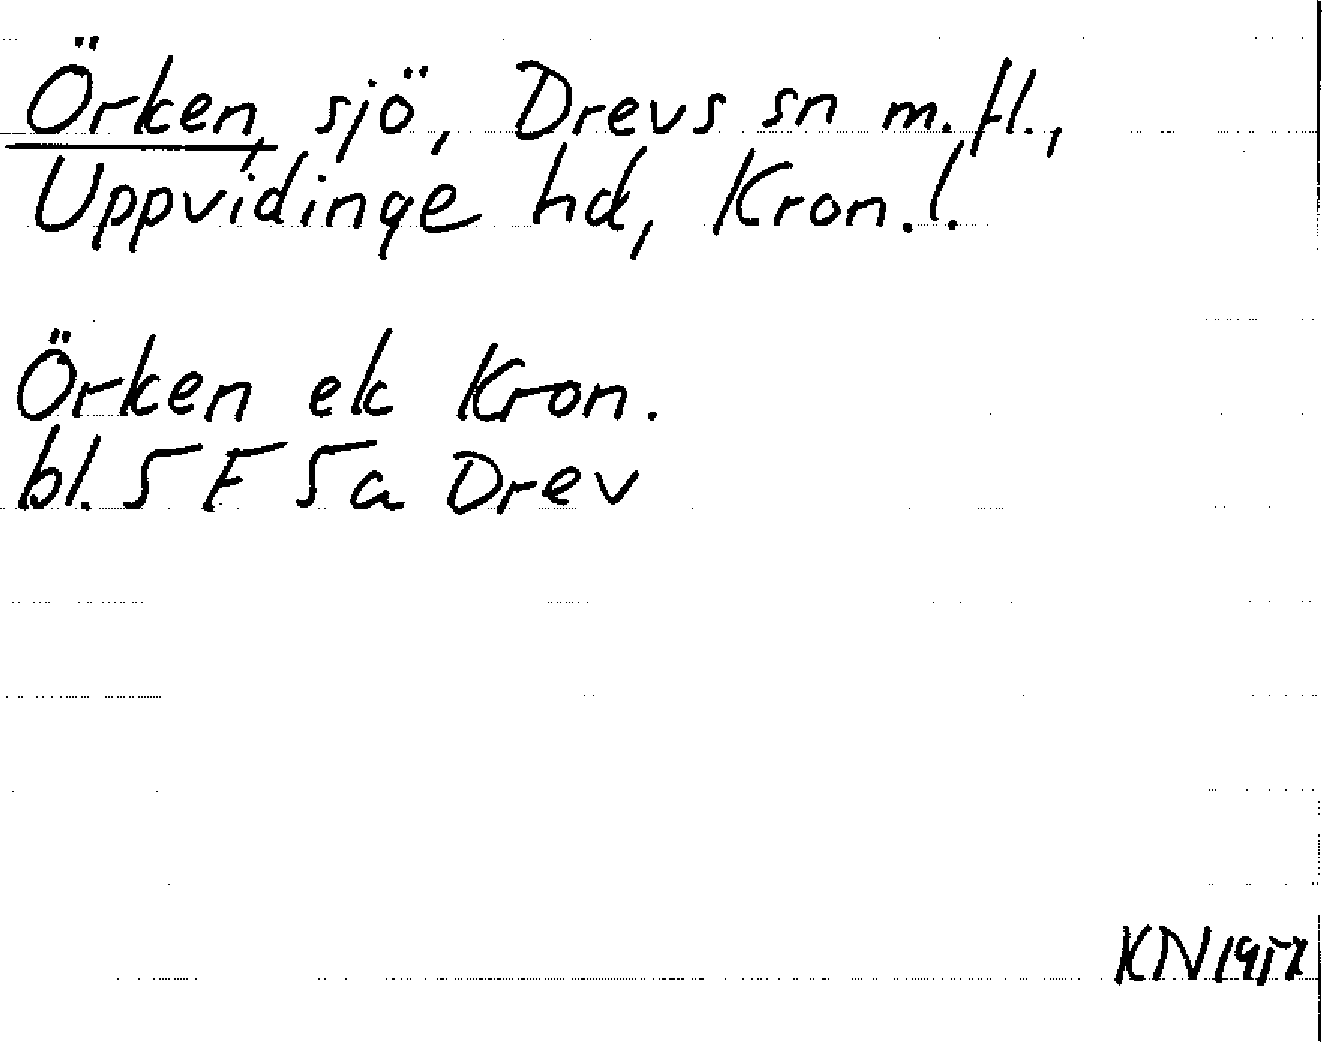 Örken, sjö, Drevs sn m.fl.,
Uppvidinge hd, Kron.l.
Örken ek Kron.
bl. 5 F 5a Drev
KN